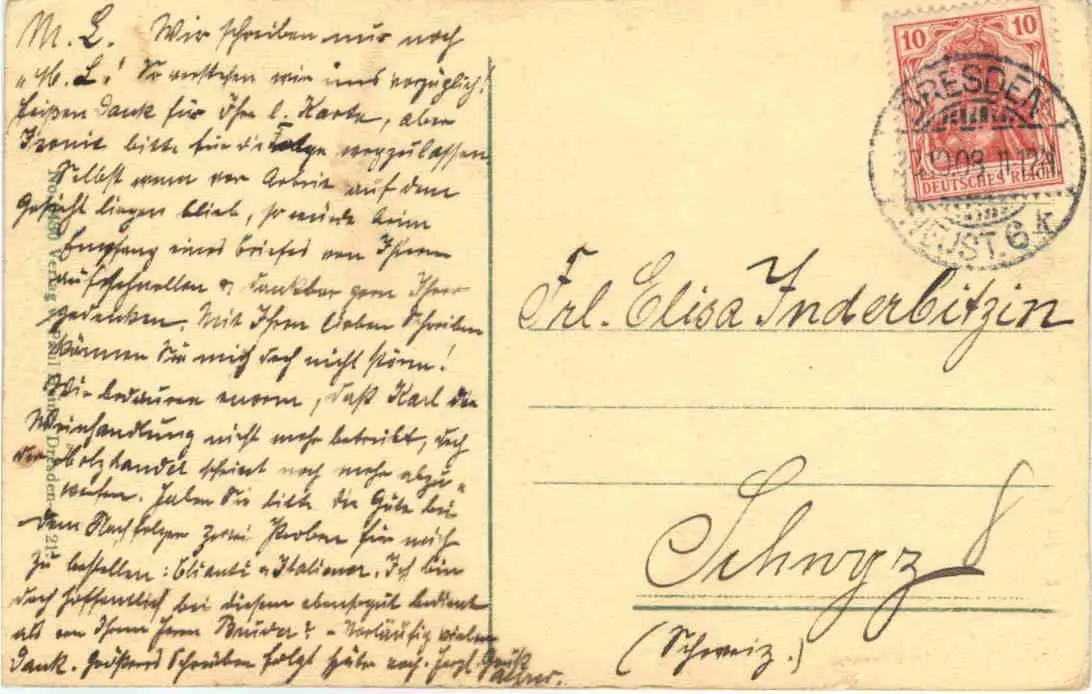 M. L. Wir schreiben nur noch
"M. L." So verstehen wir uns vorzüglich!
Heißen Dank für Ihre l. Karte, aber
Ironie bitte für die Folge wegzulassen
Selbst wenn vor Arbeit auf dem
Gesicht liegen blieb, so würde beim
Empfang eines Briefes von Ihnen
aufschnellen & dankbar gern Ihrer
gedenken. Mit Ihrem lieben Schreiben
können Sie mich doch nicht stören!
Wir bedauern enorm, daß Karl die
Weinhandlung nicht mehr betreibt, doch
der Holzhandel scheint noch mehr abzu-
werfen. Haben Sie bitte die Güte bei
dem Nachfolger zwei Proben für mich
zu bestellen: & Italiener. Ich bin
doch hoffentlich bei diesem ebensogut bedient
als von Ihrem Herrn Bruder? - Vorläufig vielen
Dank. Größeres Schreiben folgt später nach. Herzl. Gruß
10 10
DEUTSCHES REICH
DRESDEN
.10.09. 11-12V.
NEUST. 6 k
Frl. Elisa Inderbitzin
Schwyz
(Schweiz.)
Verlag Dresden 21.